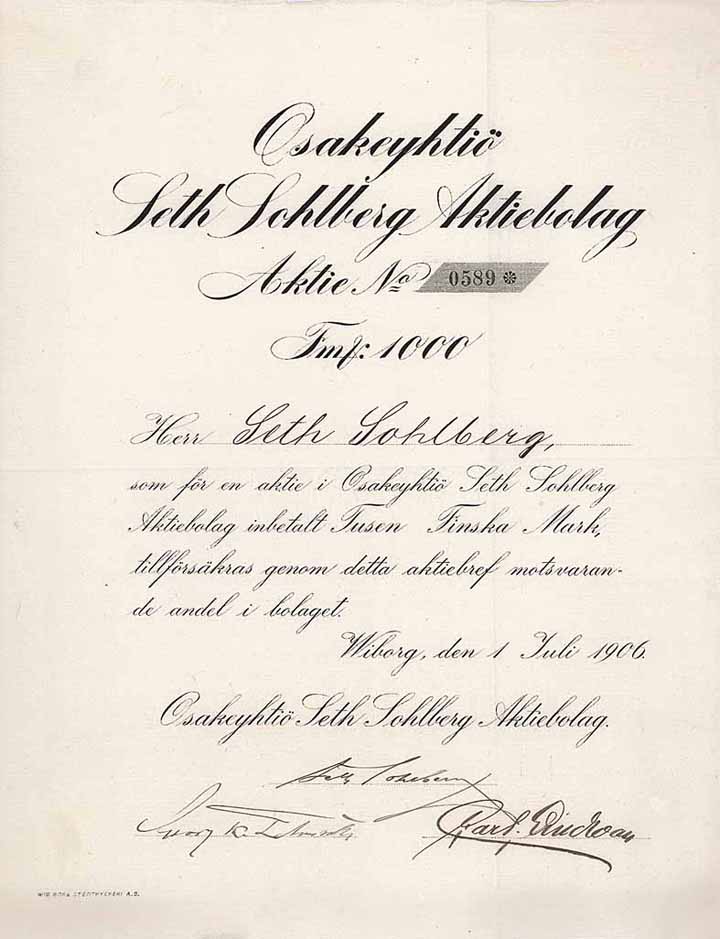 Osakeyhtiö
Seth Sohlberg Aktiebolag
Aktie No 0589
Fmk: 1000
Herr Seth Sohlberg,
som för en aktie i Osakeyhtiö Seth Sohlberg
Aktiebolag inbetalt Tusen Finska Mark,
tillförsäkras genom detta aktiebref motsvaran-
de andel i bolaget.
Wiborg, den 1 Juli 1906.
Osakeyhtiö Seth Sohlberg Aktiebolag.
Seth Sohlberg
Karl